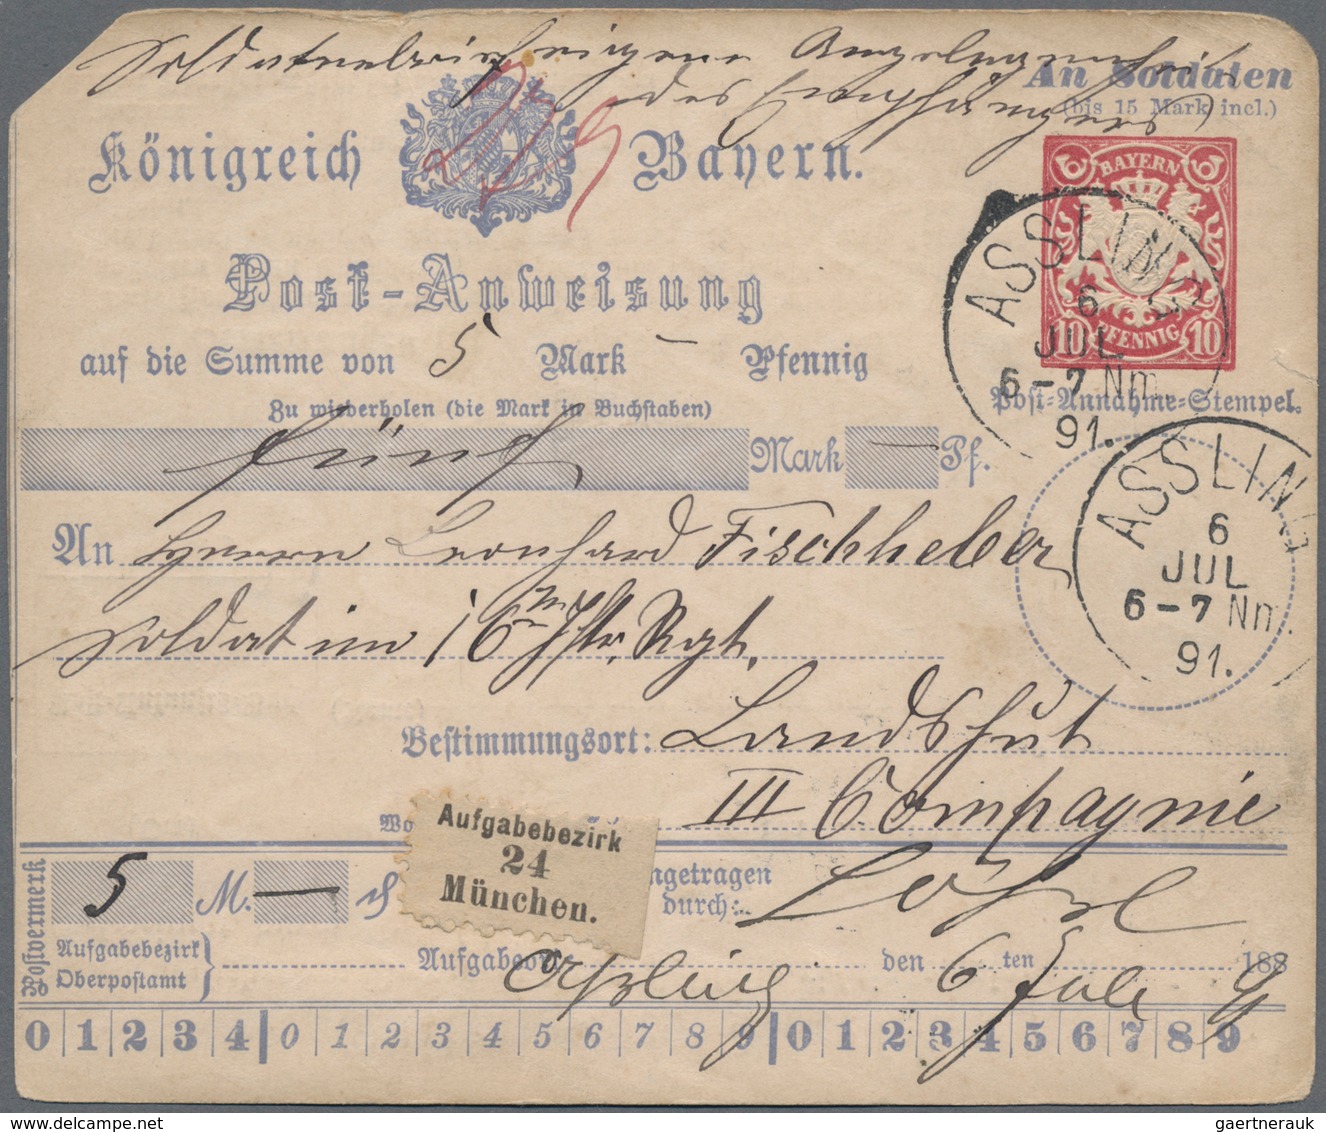 Soldatenbrief eigene Angelegenheit
des Empfängers
An Soldaten
(bis 15 Mark incl.)
Königreich Bayern.
BAYERN
10 PFENNIG 10
ASSLING
6
JUL
6-7 Nm.
91.
Post-Anweisung
auf die Summe von 5 Mark – Pfennig
Post-Annahme-Stempel.
Zu wiederholen (die Mark in Buchstaben)
fünf Mark – Pf.
ASSLING
6
JUL
6-7 Nm.
91.
An Herrn Leonhard Fischheber
Soldat im 16ten Iftr. Rgt.
Bestimmungsort: Landshut
III Compagnie
Aufgabebezirk
24
München.
Postvermerk
5 M. –
ngetragen
durch:
Aufgabebezirk
Oberpostamt
Aufgabeo Assling den 6 ten Juli 1889
0 1 2 3 4 0 1 2 3 4 5 6 7 8 9 0 1 2 3 4 5 6 7 8 9
gaertnerauk